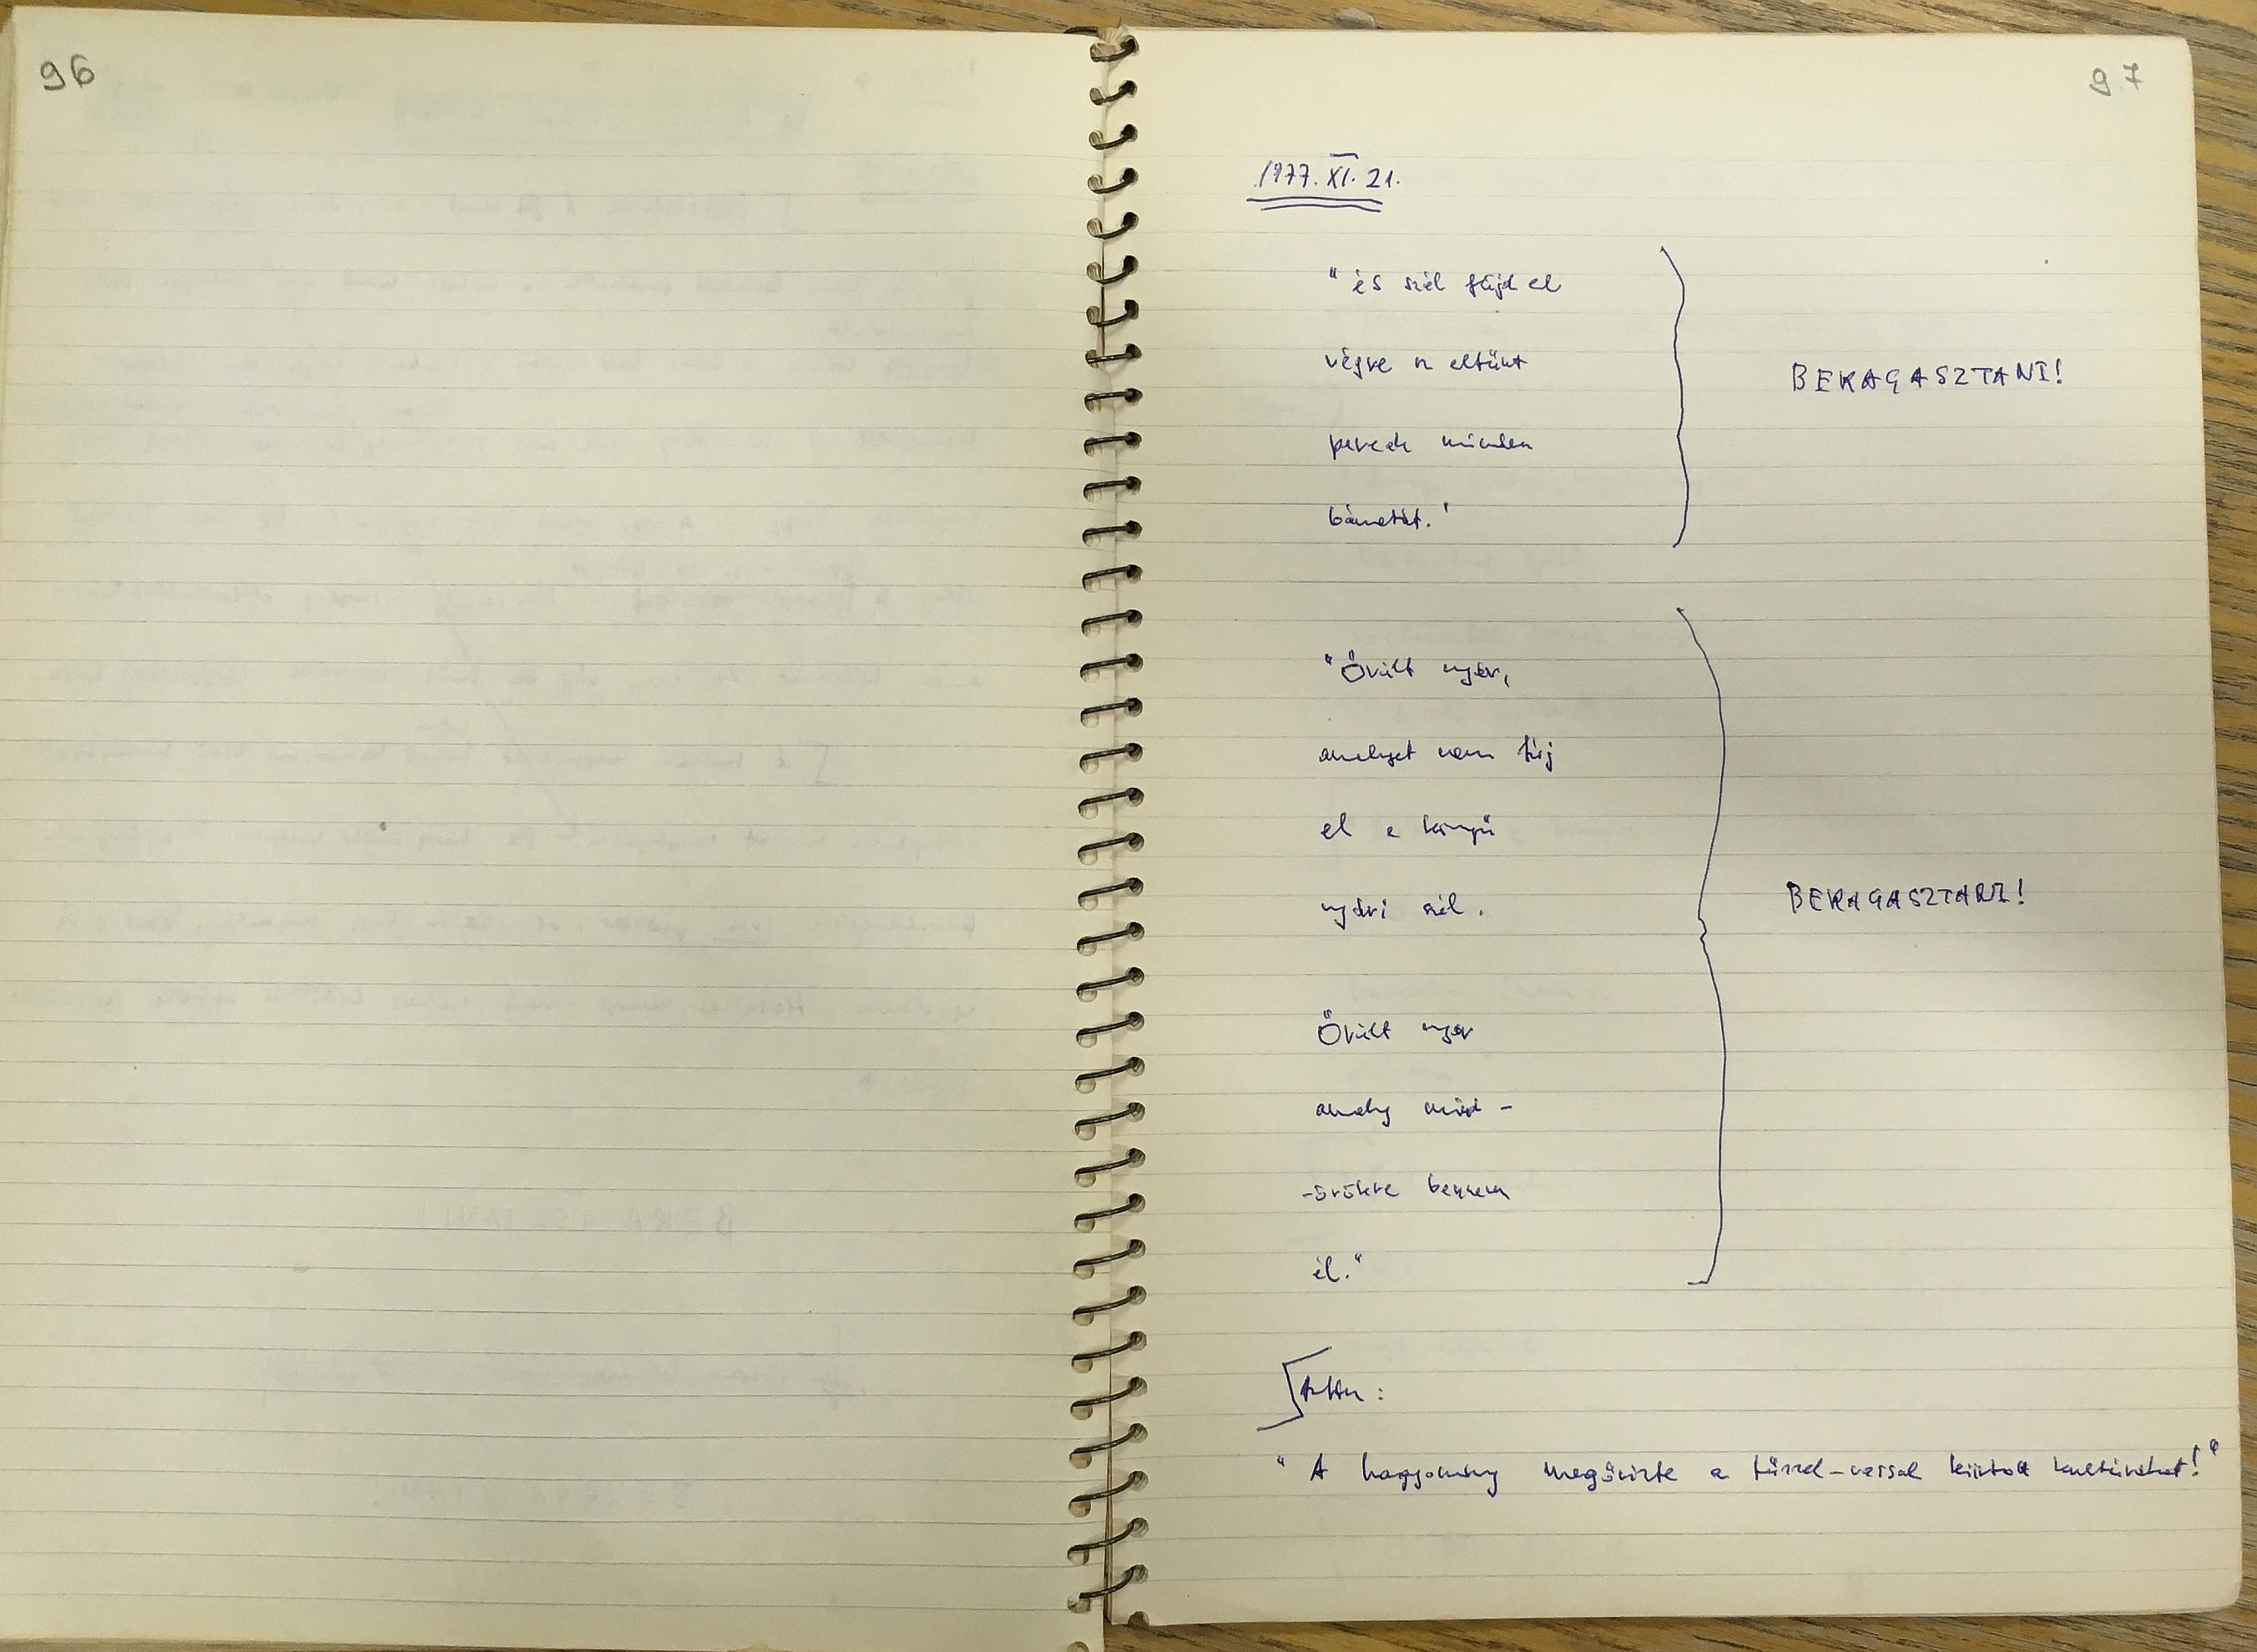 96
97
1977. XI. 21.
"és szél fújd el
végre n eltünt
percek minden
bánatát."
BERAGASZTANI!
"Örült nyár,
amelyet nem fúj
el a könnyü
nyári szél.
Örült nyár
amely mind-
-örökre bennem
él."
BERAGASZTANI!
:
"A hagyomány megőrizte a tűzzel-vassal kiirtott kultúrákat!"